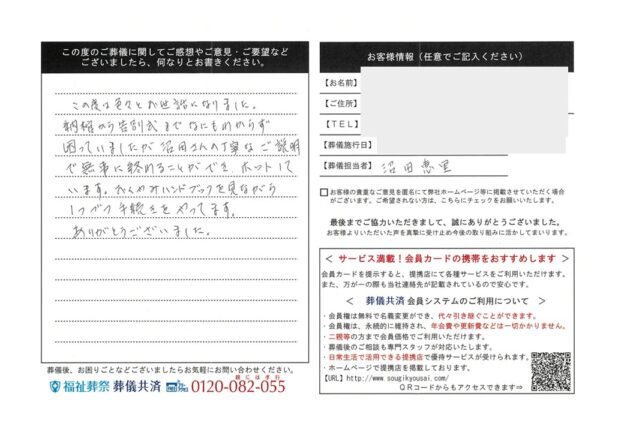 この度のご葬儀に関してご感想やご意見・ご要望など
ございましたら、何なりとお書きください。
この度は色々とお世話になりました。
納棺から告別式までなにもわからず
困っていましたが沼田さんの丁寧なご説明
で無事に終めることができ ホットして
います。おくやみハンドブックを見ながら
1つづつ手続きをやってます。
ありがとうございました。
葬儀後、お困りごとなどございましたらお気軽にお問い合わせください。
福祉葬祭 葬儀共済 0120-082-055
お客様情報（任意でご記入ください）
【お名前】
【ご住所】
【TEL】
【葬儀施行日】
【葬儀担当者】 沼田 恵里
お客様の貴重なご意見を匿名にて弊社ホームページ等に掲載させていただく場合
がございます。ご希望されない方は、こちらにチェックをお願いします。
最後までご協力いただきまして、誠にありがとうございました。
お客様よりいただいた声を真摯に受け止め今後の取り組みに活かしてまいります。
＜ サービス満載！会員カードの携帯をおすすめします ＞
会員カードを提示すると、提携店にて各種サービスをご利用いただけます。
また、万が一の際も当社連絡先が記載されているので安心です。
＜ 葬儀共済 会員システムのご利用について ＞
・会員権は無料で名義変更ができ、代々引き継ぐことができます。
・会員権は、永続的に維持され、年会費や更新費などは一切かかりません。
・二親等の方まで会員価格でご利用いただけます。
・葬儀後のご相談も専門スタッフが対応いたします。
・日常生活で活用できる提携店で優待サービスが受けられます。
・ホームページで提携店を掲載しております。
【URL】http://www.sougikyousai.com/
QRコードからもアクセスできます⇒